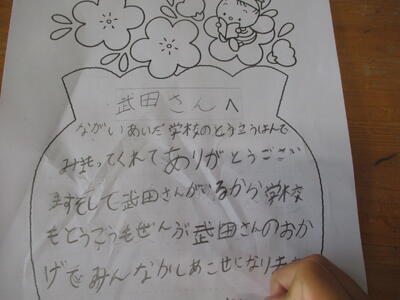 武田さんへ
ながいあいだ学校のとう立うはんで
みまもってくれてありがとうござい
ますそして武田さんがいるから学校
もとうこうもぜんぶ武田さんのおか
げでみんなかしあこせになりました